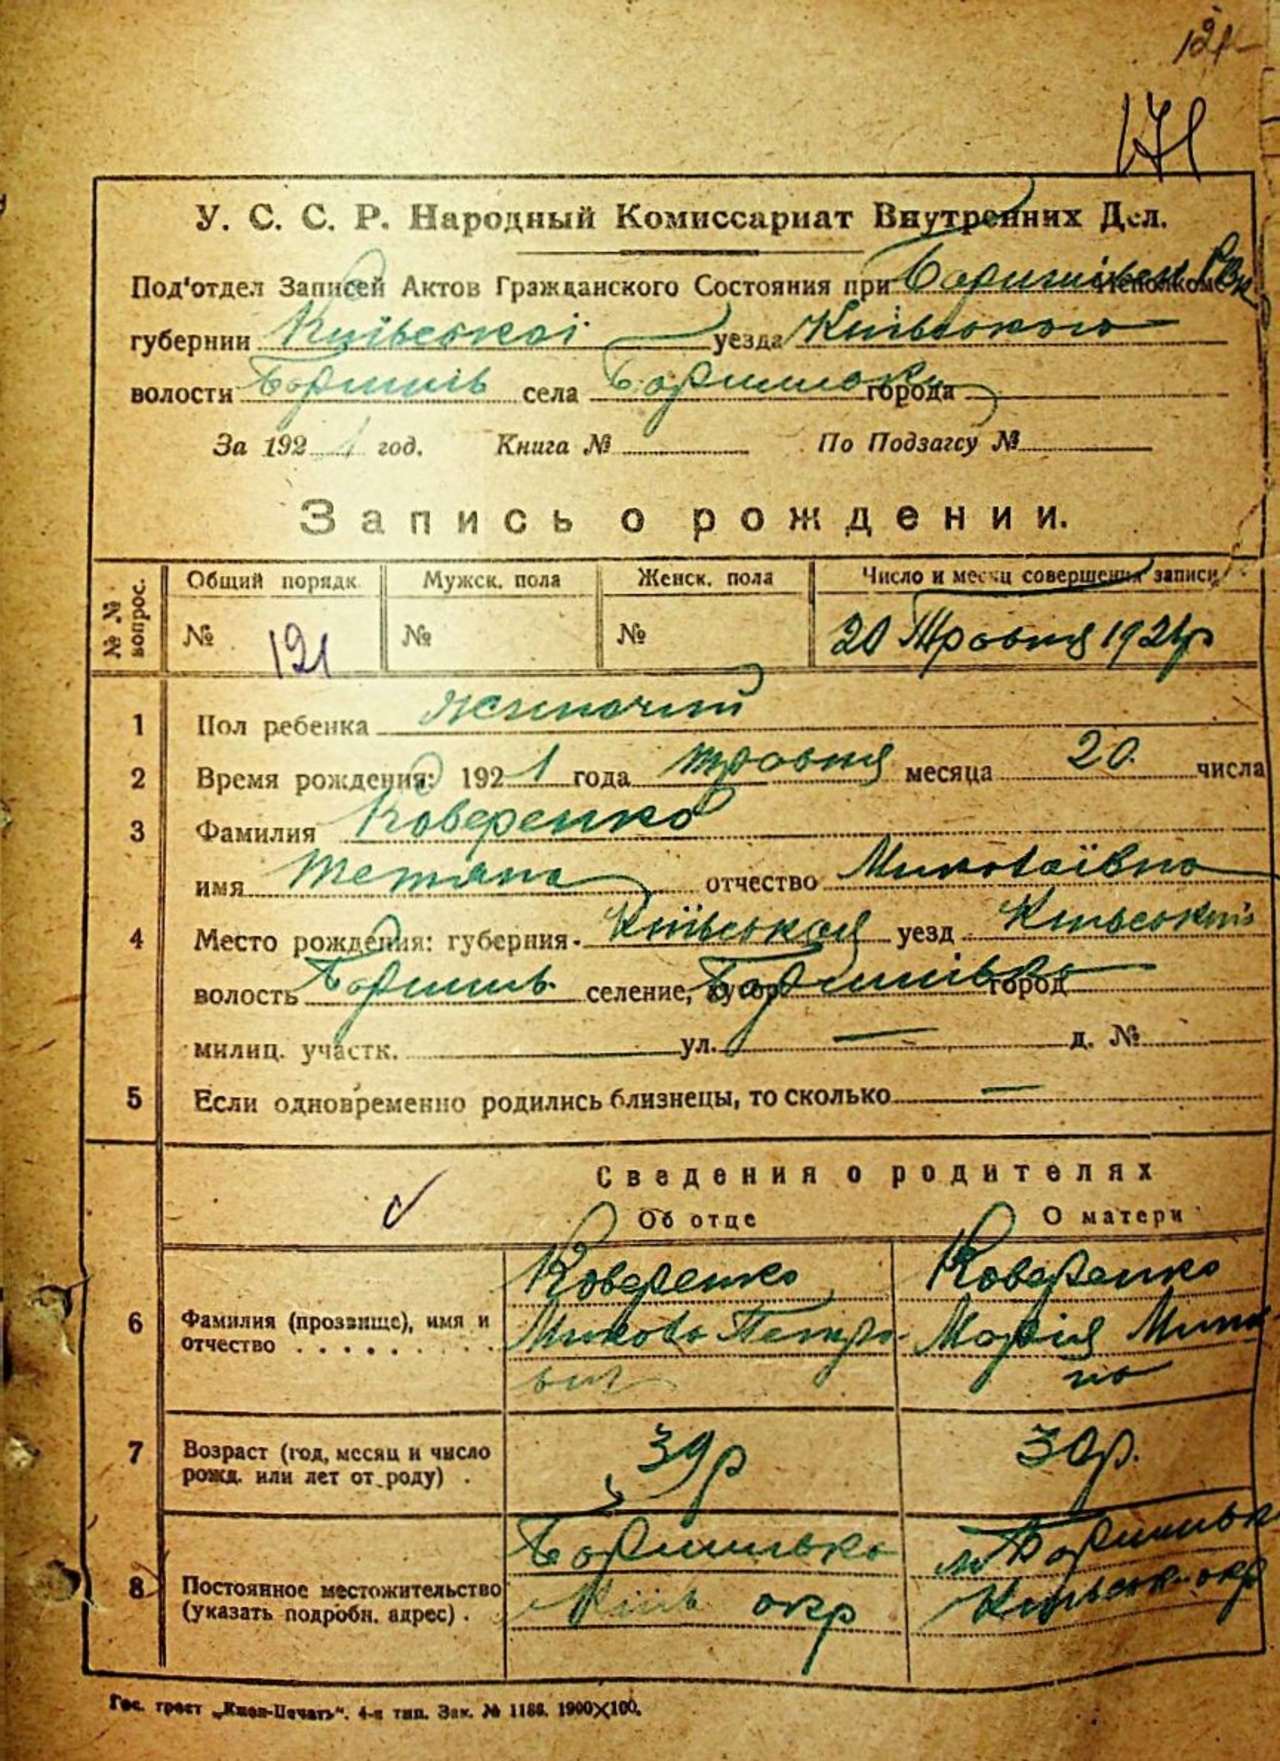 121
171
У. С. С. Р. Народный Комиссариат Внутренних Дел.
Под'отдел Записей Актов Гражданского Состояния при Исполкоме
губернии Київської уезда Київського
волости Баришів села города
За 1921 год. Книга № По Подзагсу №
Запись о рождении.
№№ вопрос. Общий порядк. Мужск. пола Женск. пола Число и месяц совершения записи
№ 121 № № 20 Травня 1921р
1 Пол ребенка жиночий
2 Время рождения: 1921 года травня месяца 20 числа
3 Фамилия Коверенко
имя Тетяна отчество Миколаївна
4 Место рождения: губерния Київська уезд Київський
волость Баришів селение, хутор Баришівка город
милиц. участк. — ул. — д. №
5 Если одновременно родились близнецы, то сколько —
Сведения о родителях
Об отце О матери
6 Фамилия (прозвище), имя и отчество
Коверенко Коверенко
Микола Петро- Марія
вич на
7 Возраст (год, месяц и число рожд. или лет от роду) . 39р 30р.
8 Постоянное местожительство (указать подробн. адрес) .
Баришівка м Баришівка
Київ окр Київськ. окр
Гос. трест „Киев-Печать". 4-я тип. Зак. № 1186. 1900×100.